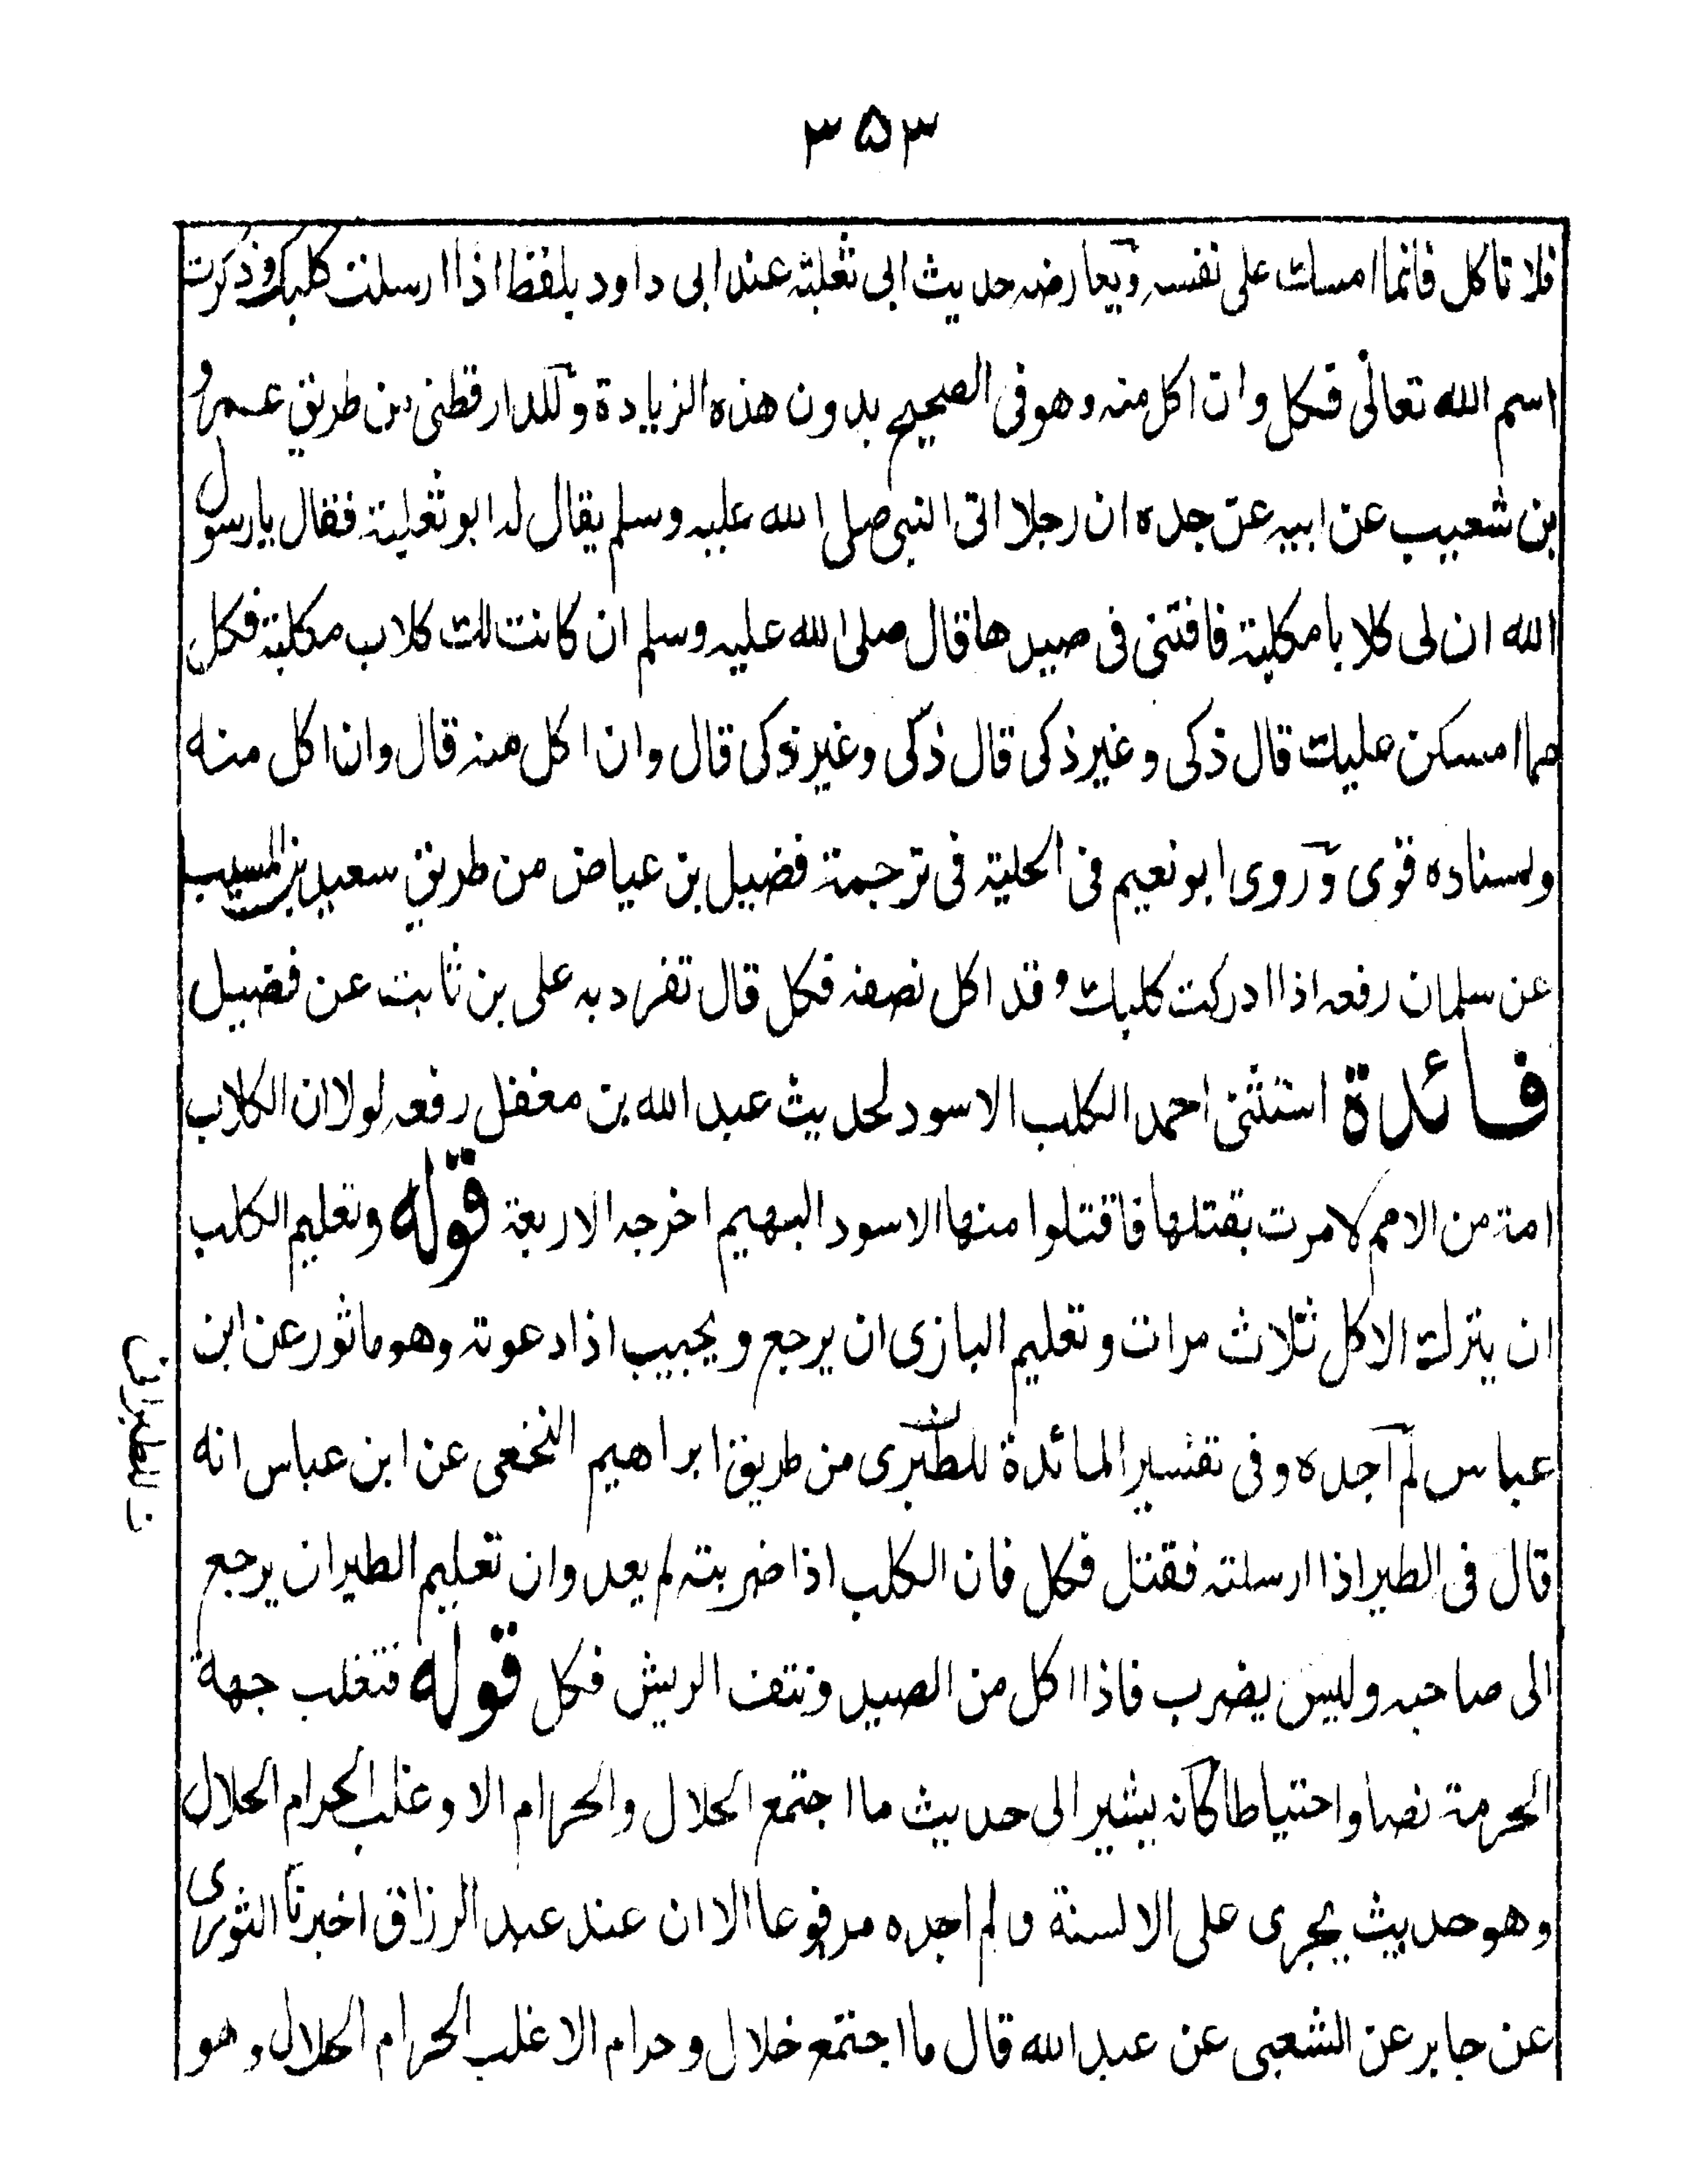 ۳۵۳
فلا تاكل فانما امسك على نفسه ويعارضه حديث ابى ثعلبة عند ابى داود بلفظ اذا ارسلت كلبك وذكرت
اسم الله تعالى فكل وان اكل منه وهو فى الصحيح بدون هذه الزيادة وللدارقطنى من طريق عمرو
بن شعيب عن ابيه عن جده ان رجلا اتى النبى صلى الله عليه وسلم يقال له ابو ثعلبة فقال يا رسول
الله ان لى كلابا مكلبة فافتنى فى صيدها قال صلى الله عليه وسلم ان كانت لك كلاب مكلبة فكل
مما امسكن عليك قال ذكى وغير ذكى قال ذكى وغير ذكى قال وان اكل منه قال وان اكل منه
واسناده قوى وروى ابو نعيم فى الحلية فى ترجمة فضيل بن عياض من طريق سعيد بن المسيب
عن سلمان رفعه اذا ادركت كلبك وقد اكل نصفه فكل قال تفرد به على بن ثابت عن فضيل
فائدة استثنى احمد الكلب الاسود لحديث عبد الله بن مغفل رفعه لولا ان الكلاب
امة من الامم لامرت بقتلها فاقتلوا منها الاسود البهيم اخرجه الاربعة قوله وتعليم الكلب
ان يترك الاكل ثلاث مرات وتعليم البازى ان يرجع ويجيب اذا دعوته وهو ماثور عن ابن
عباس لم اجده وفى تفسير المائدة للطبرى من طريق ابراهيم النخعى عن ابن عباس انه
قال فى الطير اذا ارسلته فقتل فكل فان الكلب اذا ضربته لم يعد وان تعليم الطير ان يرجع
الى صاحبه وليس يضرب فاذا اكل من الصيد ونتف الريش فكل قوله فتغلب جهة
الحرمة نصا واحتياطا كانه يشير الى حديث ما اجتمع الحلال والحرام الا وغلب الحرام الحلال
وهو حديث يجرى على الالسنة و لم اجده مرفوعا الا ان عند عبد الرزاق اخبرنا الثورى
عن جابر عن الشعبى عن عبد الله قال ما اجتمع حلال وحرام الا غلب الحرام الحلال وهو